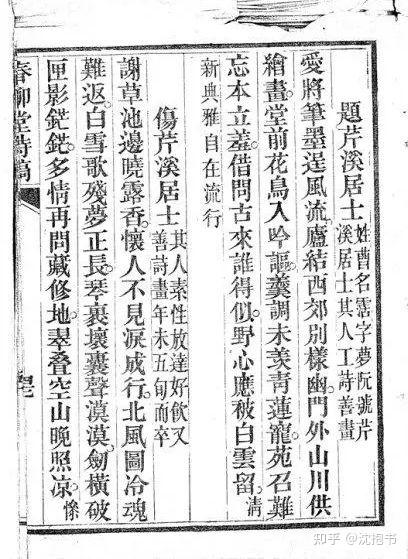 題芹溪居士
姓曹名霑字夢阮號芹
溪居士其人工詩善畫
愛將筆墨逞風流。廬結西郊別樣幽。門外山川供
繪畫。堂前花鳥入吟謳。羹調未羨青蓮寵。苑召難
忘本立羞。借問古來誰得似。野心應被白雲留。清
新典雅自在流行
傷芹溪居士
其人素性放達好飲又
善詩畫年未五旬而卒
謝草池邊曉露香。懷人不見淚成行。北風圖冷魂
難返。白雪歌殘夢正長。琴裹壞囊聲漠漠。劍橫破
匣影鋩鋩。多情再問藏修地。翠叠空山晚照凉。
春柳堂詩稿
知乎 @沈抱书